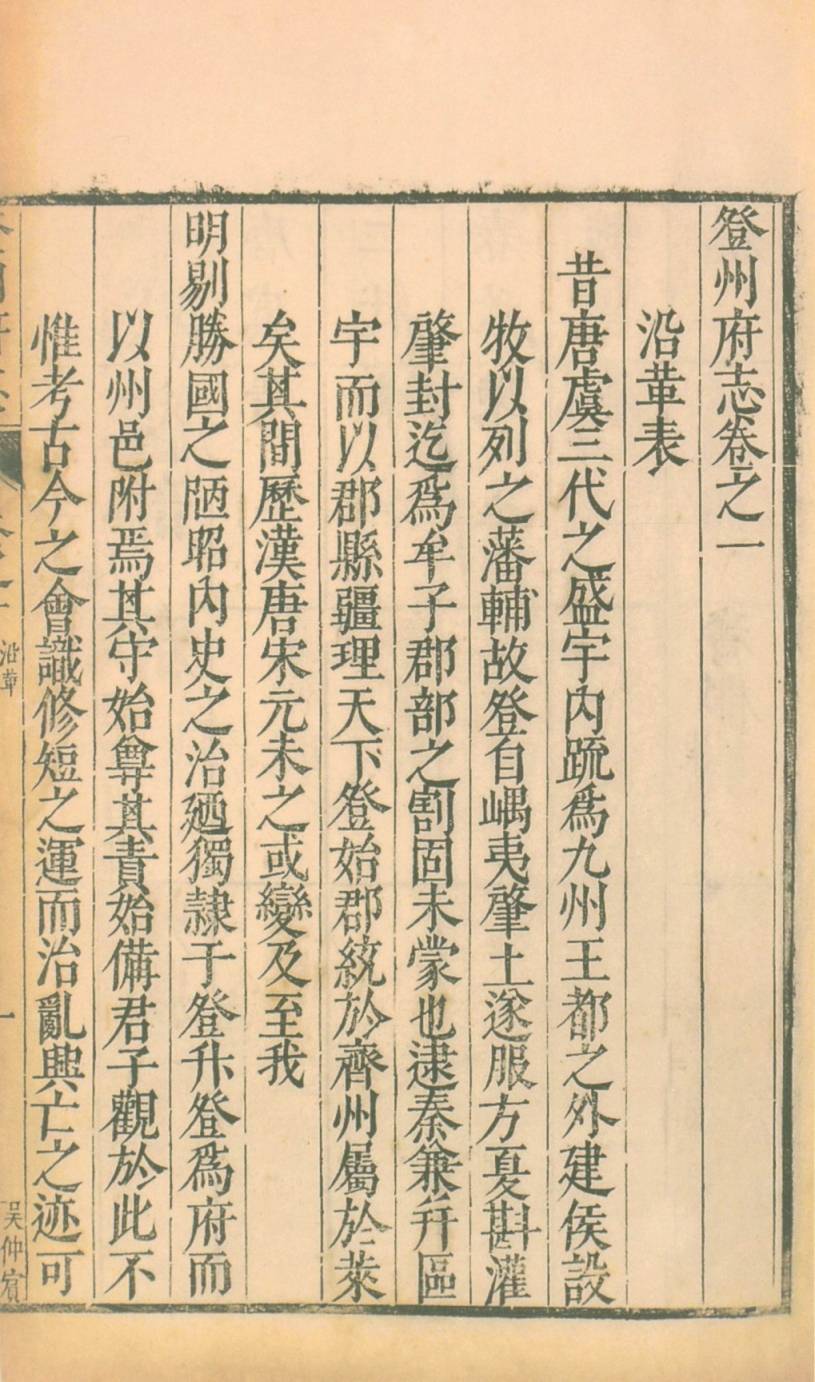 登州府志卷之一
沿革表
昔唐虞三代之盛宇內疏爲九州王都之外建侯設
牧以列之藩輔故登自嵎夷肇土遂服方夏斟灌
肇封迄爲牟子郡部之割固未蒙也逮秦兼幷區
宇而以郡縣疆理天下登始郡統於齊州屬於萊
矣其間歷漢唐宋元未之或變及至我
明剔勝國之陋昭內史之治廼獨隸于登升登爲府而
以州邑附焉其守始尊其責始備君子觀於此不
惟考古今之會識修短之運而治亂興亡之迹可
沿革
一
吳仲賓